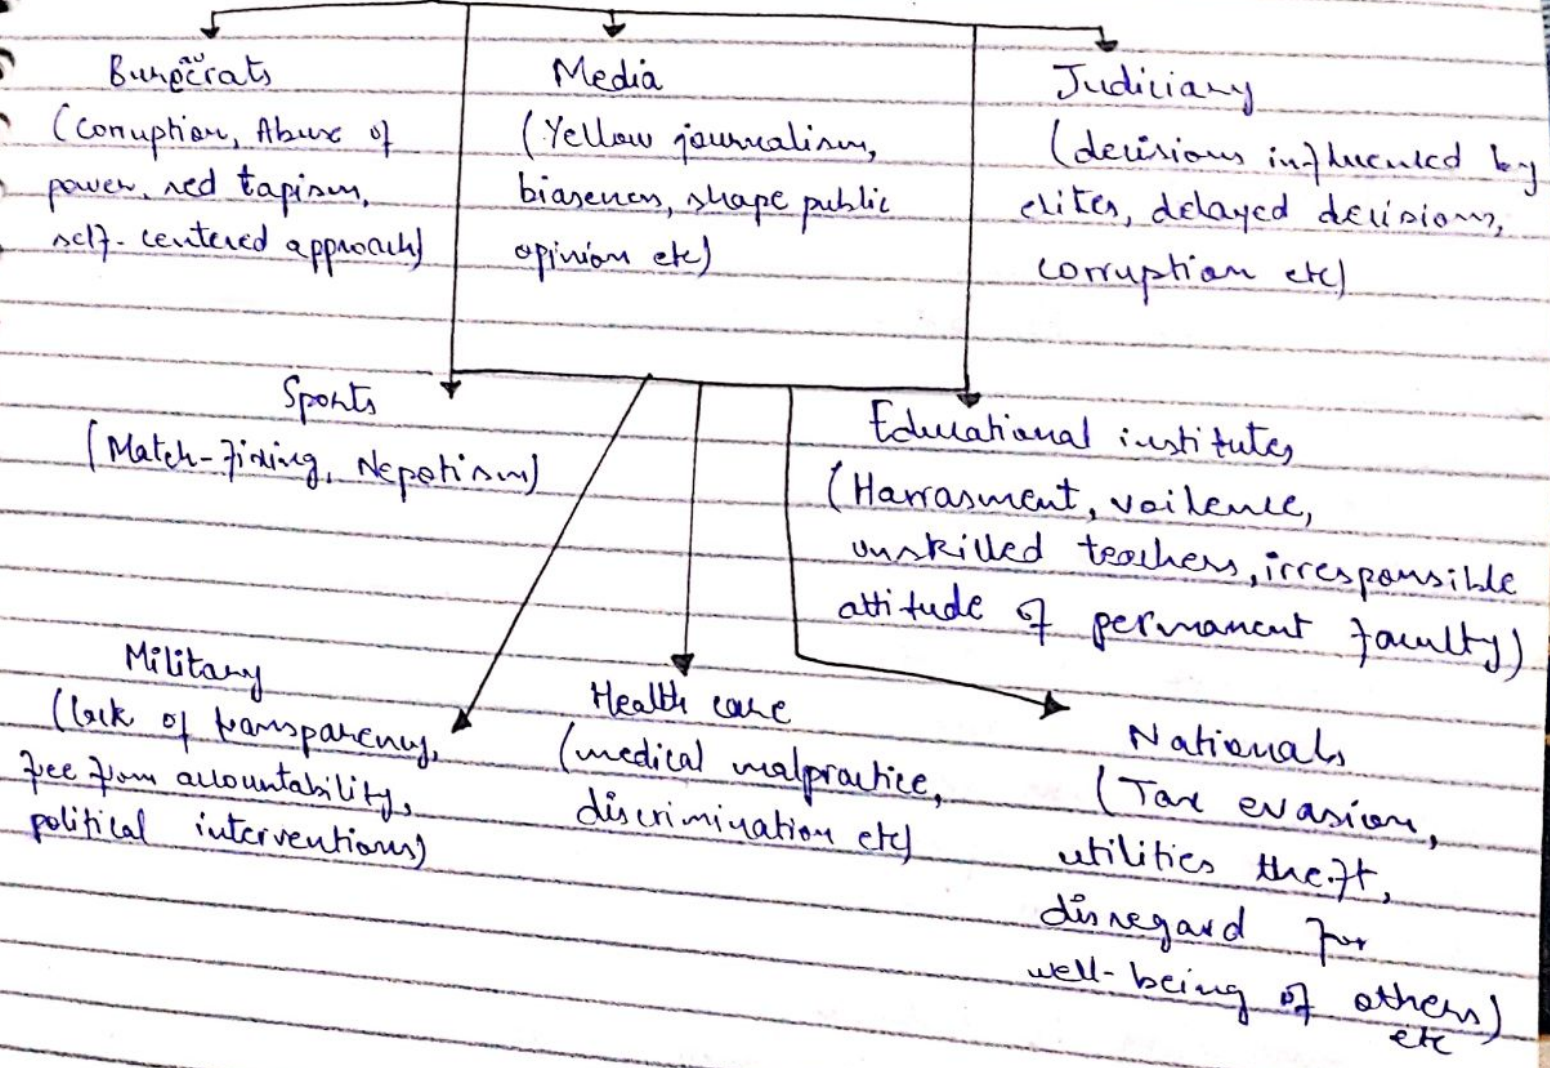 Bureaucrats
(Corruption, Abuse of
power, red tapism,
self-centered approach)
Media
(Yellow journalism,
biaseness, shape public
opinion etc)
Judiciary
(decisions influenced by
elites, delayed decisions,
corruption etc)
Sports
(Match-fixing, Nepotism)
Educational institutes
(Harrasment, voilence,
unskilled teachers, irresponsible
attitude of permanent faculty)
Military
(lack of transparency,
free from accountability,
political interventions)
Health care
(medical malpractice,
discrimination etc)
Nationals
(Tax evasion,
utilities theft,
disregard for
well-being of others)
etc